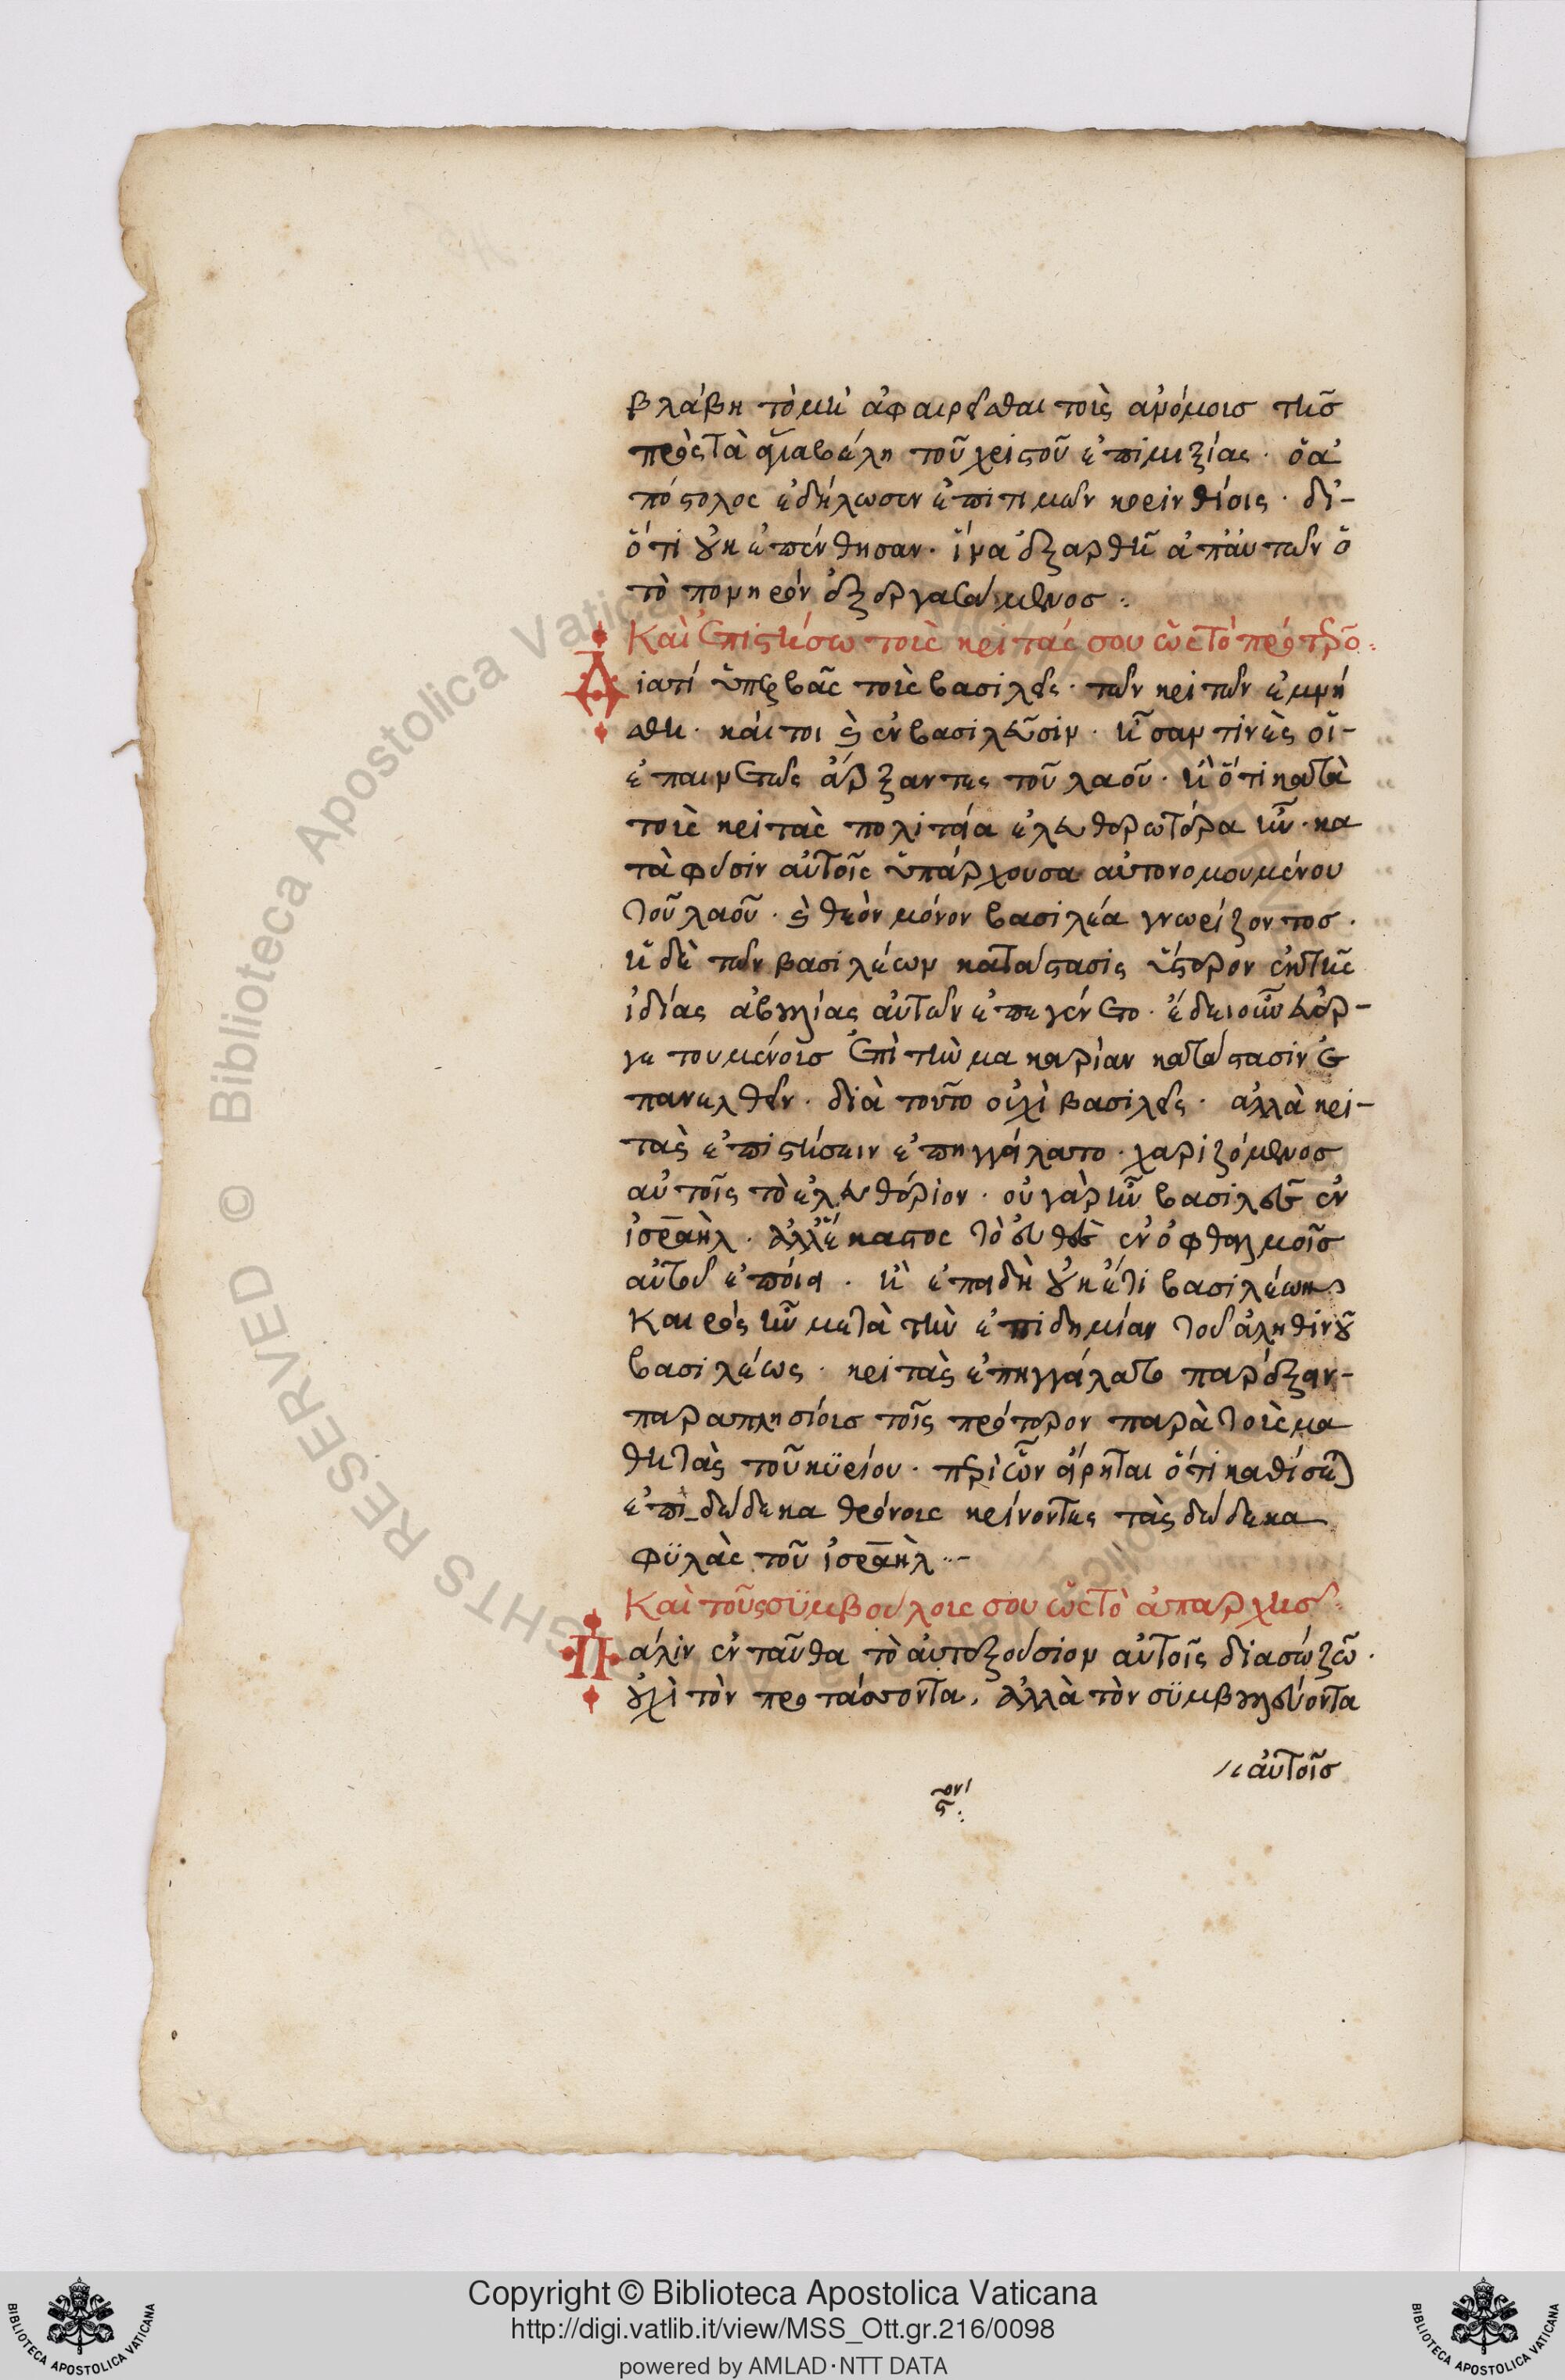 βλάβη τὸ μὴ ἀφαιρεῖσθαι τοὺς ἀνόμους τῆς
πρὸς τὰ μέλη τοῦ χριστοῦ ἐπιμιξίας· ὃ ἀ
πόστολος ἐδήλωσεν ἐπιτιμῶν κορινθίοις· δι-
ότι οὐκ ἐπένθησαν· ἵνα ἐξαρθῇ ἀπ' αὐτῶν ὁ
τὸ πονηρὸν ἐξεργασάμενος·
Καὶ ἐπιστήσω τοὺς κριτάς σου ὡς τὸ πρότερον:
Διατί ὑπερβὰς τοὺς βασιλεῖς· τῶν κριτῶν ἐμνή
σθη· καίτοι καὶ ἐν βασιλεῦσιν· ἦσαν τινὲς οἳ-
ἐπαινετῶς ἄρξαντες τοῦ λαοῦ· ἢ ὅτι κατὰ
τοὺς κριτὰς πολιτεία ἐλευθερωτέρα ἦν· κα
τὰ φύσιν αὐτοῖς ὑπάρχουσα αὐτονομουμένου
τοῦ λαοῦ· καὶ θεὸν μόνον βασιλέα γνωρίζοντος·
ἡ δὲ τῶν βασιλέων κατάστασις ὕστερον ἐκ τῆς
ἰδίας ἀβουλίας αὐτῶν ἐπεγένετο· ἔδει οὖν εὐερ-
γετουμένους ἐπὶ τὴν μακαρίαν κατάστασιν ἐ
πανελθεῖν· διὰ τοῦτο οὐχὶ βασιλεῖς· ἀλλὰ κρι-
τὰς ἐπιστήσειν ἐπηγγείλατο· χαριζόμενος
αὐτοῖς τὸ ἐλευθέριον· οὐ γὰρ ἦν βασιλεὺς ἐν
ἰσραὴλ· ἀλλ' ἕκαστος τὸ εὐθὲς ἐν ὀφθαλμοῖς
αὐτοῦ ἐποίει· ἢ ἐπειδὴ οὐκέτι βασιλέων
καιρὸς ἦν μετὰ τὴν ἐπιδημίαν τοῦ ἀληθινοῦ
βασιλέως· κριτὰς ἐπηγγείλατο παρέξειν-
παραπλησίους τοῖς πρότερον παρὰ τοὺς μα
θητὰς τοῦ κυρίου· περὶ ὧν εἴρηται ὅτι καθίσεσθε
ἐπὶ δώδεκα θρόνους κρίνοντες τὰς δώδεκα
φυλὰς τοῦ ἰσραὴλ··-
Καὶ τοὺς συμβούλους σου ὡς τὸ ἀπαρχῆς·
Πάλιν ἐνταῦθα τὸ αὐτεξούσιον αὐτοῖς διασώζων·
οὐχὶ τὸν προτάσσοντα, ἀλλὰ τὸν συμβουλεύοντα
αὐτοῖς
Copyright © Biblioteca Apostolica Vaticana
http://digi.vatlib.it/view/MSS_Ott.gr.216/0098
powered by AMLAD·NTT DATA